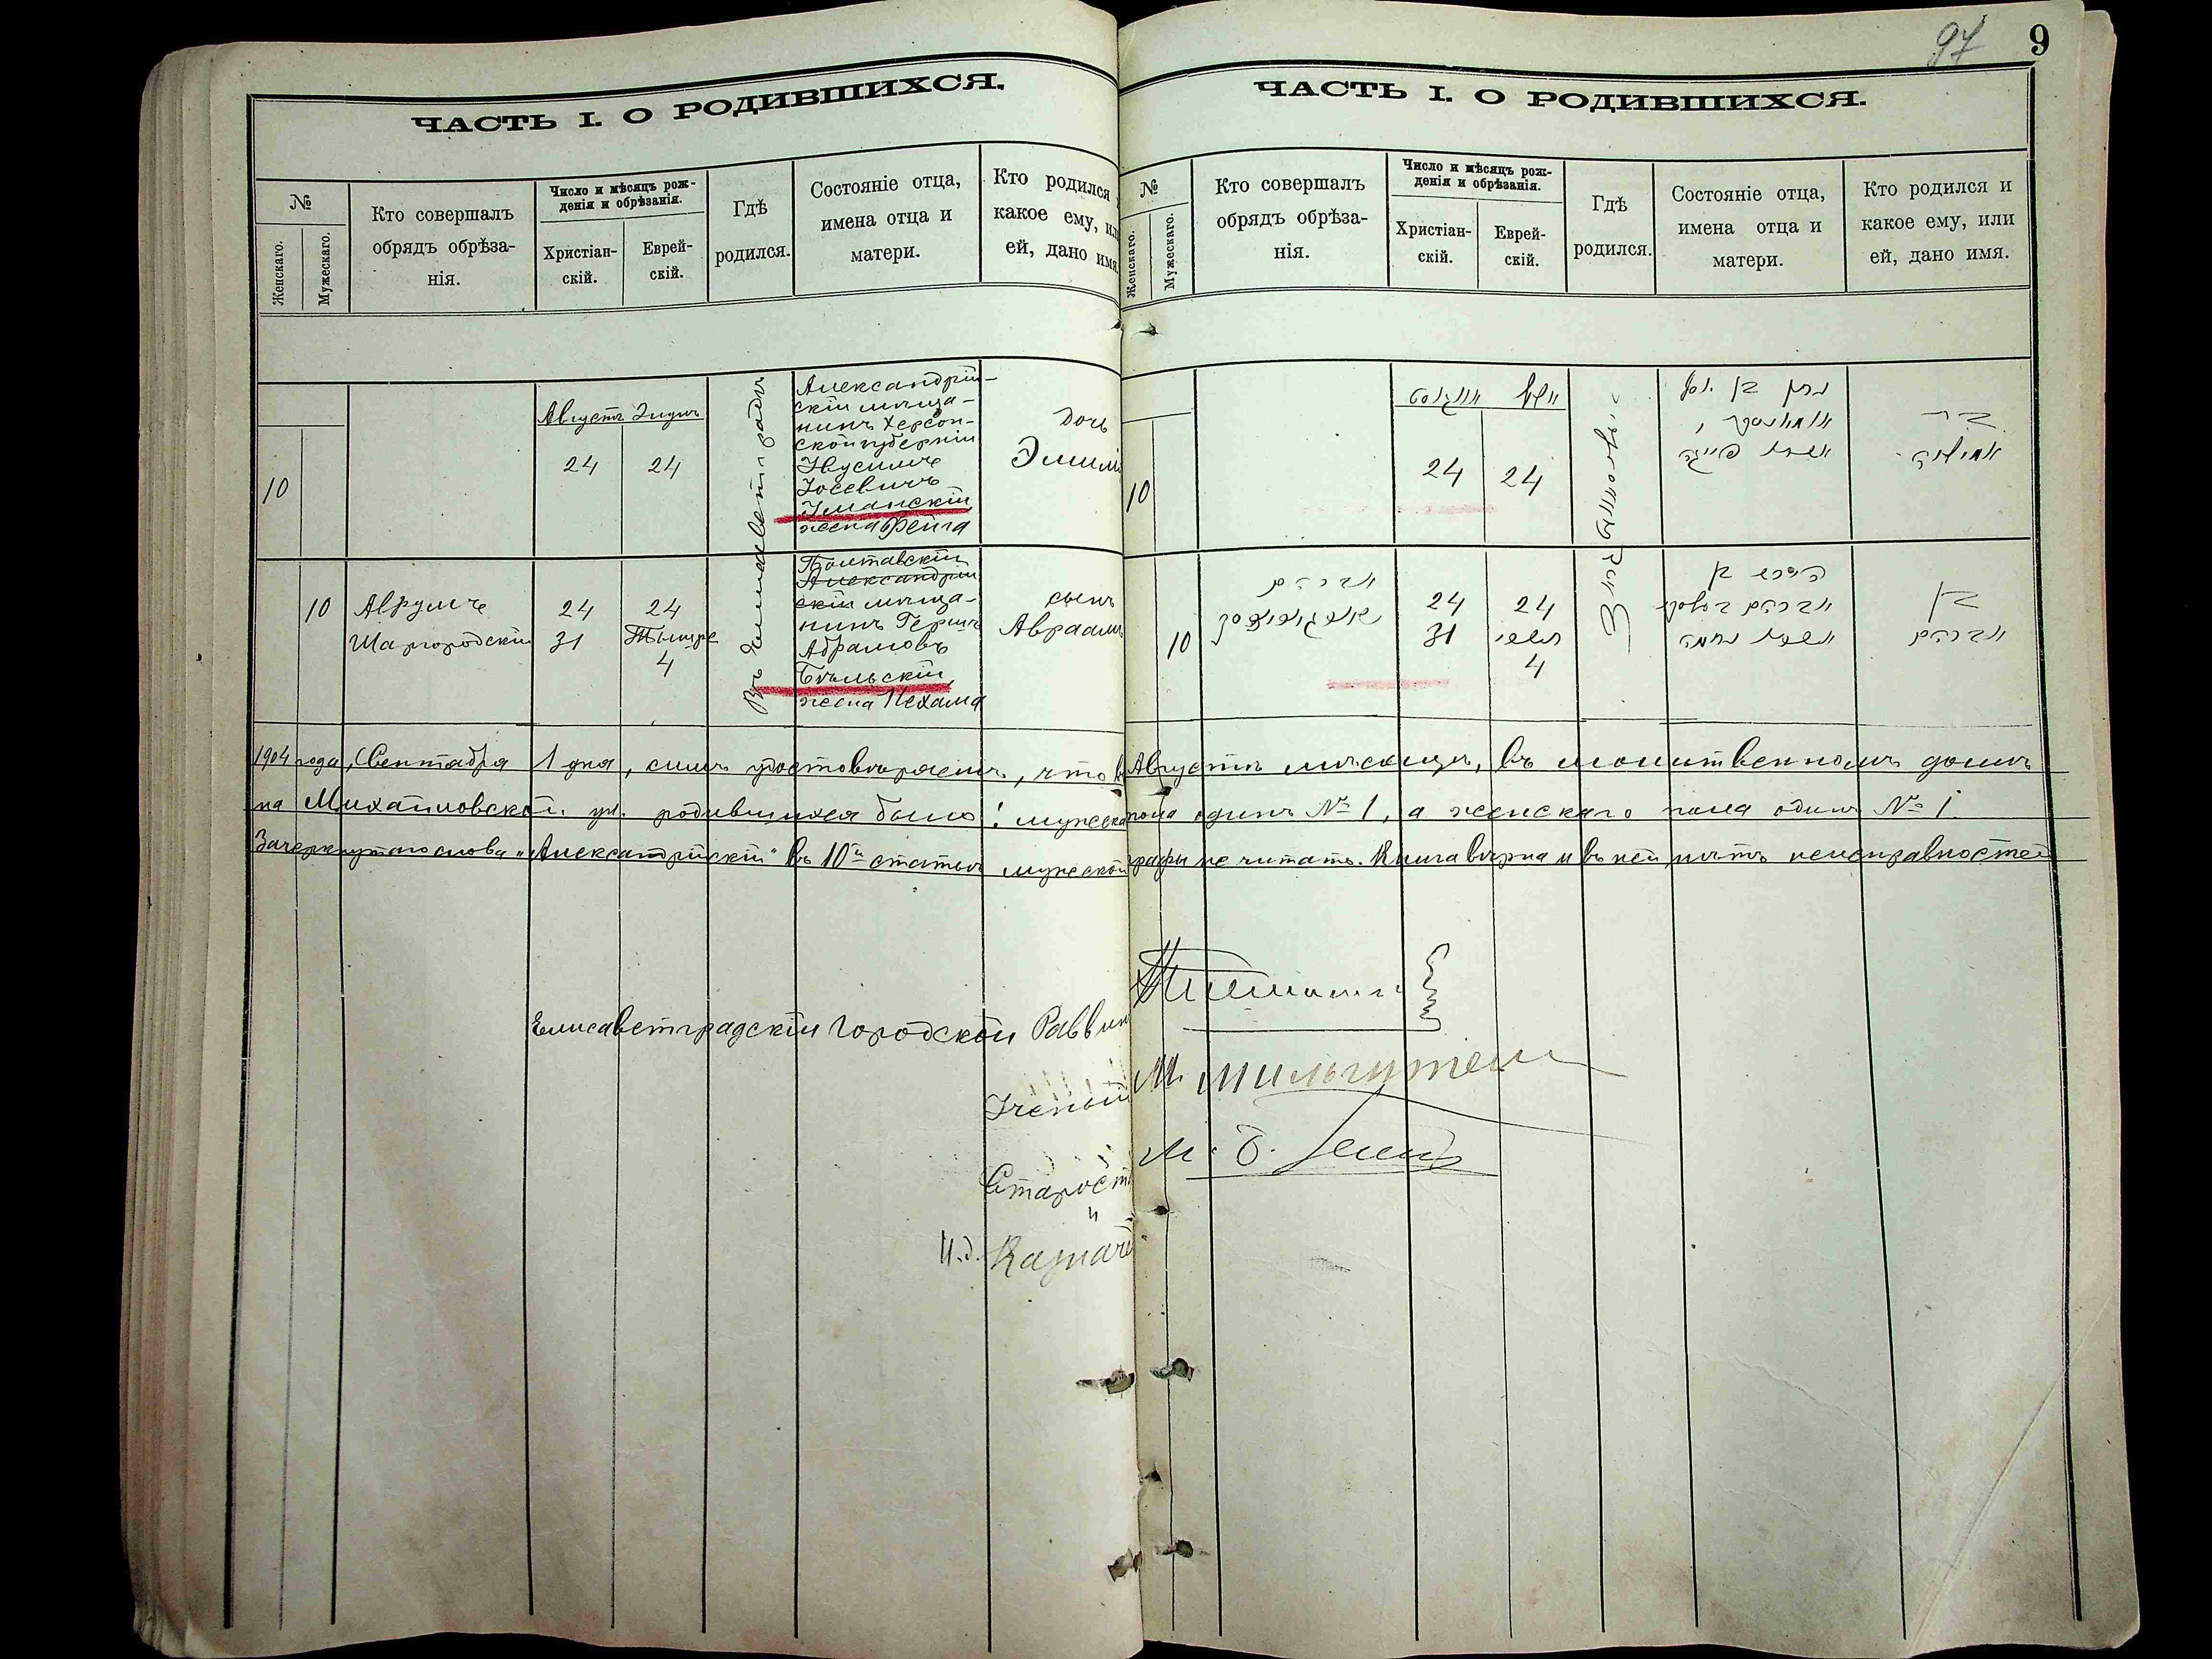 ЧАСТЬ I. О РОДИВШИХСЯ.
№
Женскаго.
Мужескаго.
Кто совершалъ
обрядъ обрѣза-
нія.
Число и мѣсяцъ рож-
денія и обрѣзанія.
Христіан-
скій.
Еврей-
скій.
Гдѣ
родился.
Состояніе отца,
имена отца и
матери.
Кто родился
какое ему, или
ей, дано имя.
10
Августъ Элулъ
24 24
Въ Елисаветградѣ
Александрій-
скій мѣща-
нинъ Херсон-
ской губерніи
Нусимъ
Іосевичъ
Уманскій,
жена Фейга
дочь
Эмилі
10
Аврумъ
Шаргородскій
24 24
31 Тишре
4
Полтавскій
Александрій
скій мѣща-
нинъ Гершъ
Абрамовъ
Бѣльскій,
жена Нехама
сынъ
Авраамъ
97 9
ЧАСТЬ I. О РОДИВШИХСЯ.
№
Женскаго.
Мужескаго.
Кто совершалъ
обрядъ обрѣза-
нія.
Число и мѣсяцъ рож-
денія и обрѣзанія.
Христіан-
скій.
Еврей-
скій.
Гдѣ
родился.
Состояніе отца,
имена отца и
матери.
Кто родился и
какое ему, или
ей, дано имя.
10
24 24
10
אברהם
24 24
31 תשרי
4
בן
אברהם
1904 года, Сентября 1 дня, симъ удостовѣряемъ, что въ Августѣ мѣсяцѣ, въ молитвенномъ домѣ
на Михайловской ул. родившихся было: мужеска пола одинъ № 1, а женскаго пола одинъ № 1.
Зачеркнутаго слова "Александрійскій" въ 10й статьѣ мужской графы не читать. Книга вѣрна и въ ней нѣтъ неисправностей
Елисаветградскій Городской Раввин
Ученый
М. Мильгутеш
Старост
и
М. Б.
И.д. Казначе